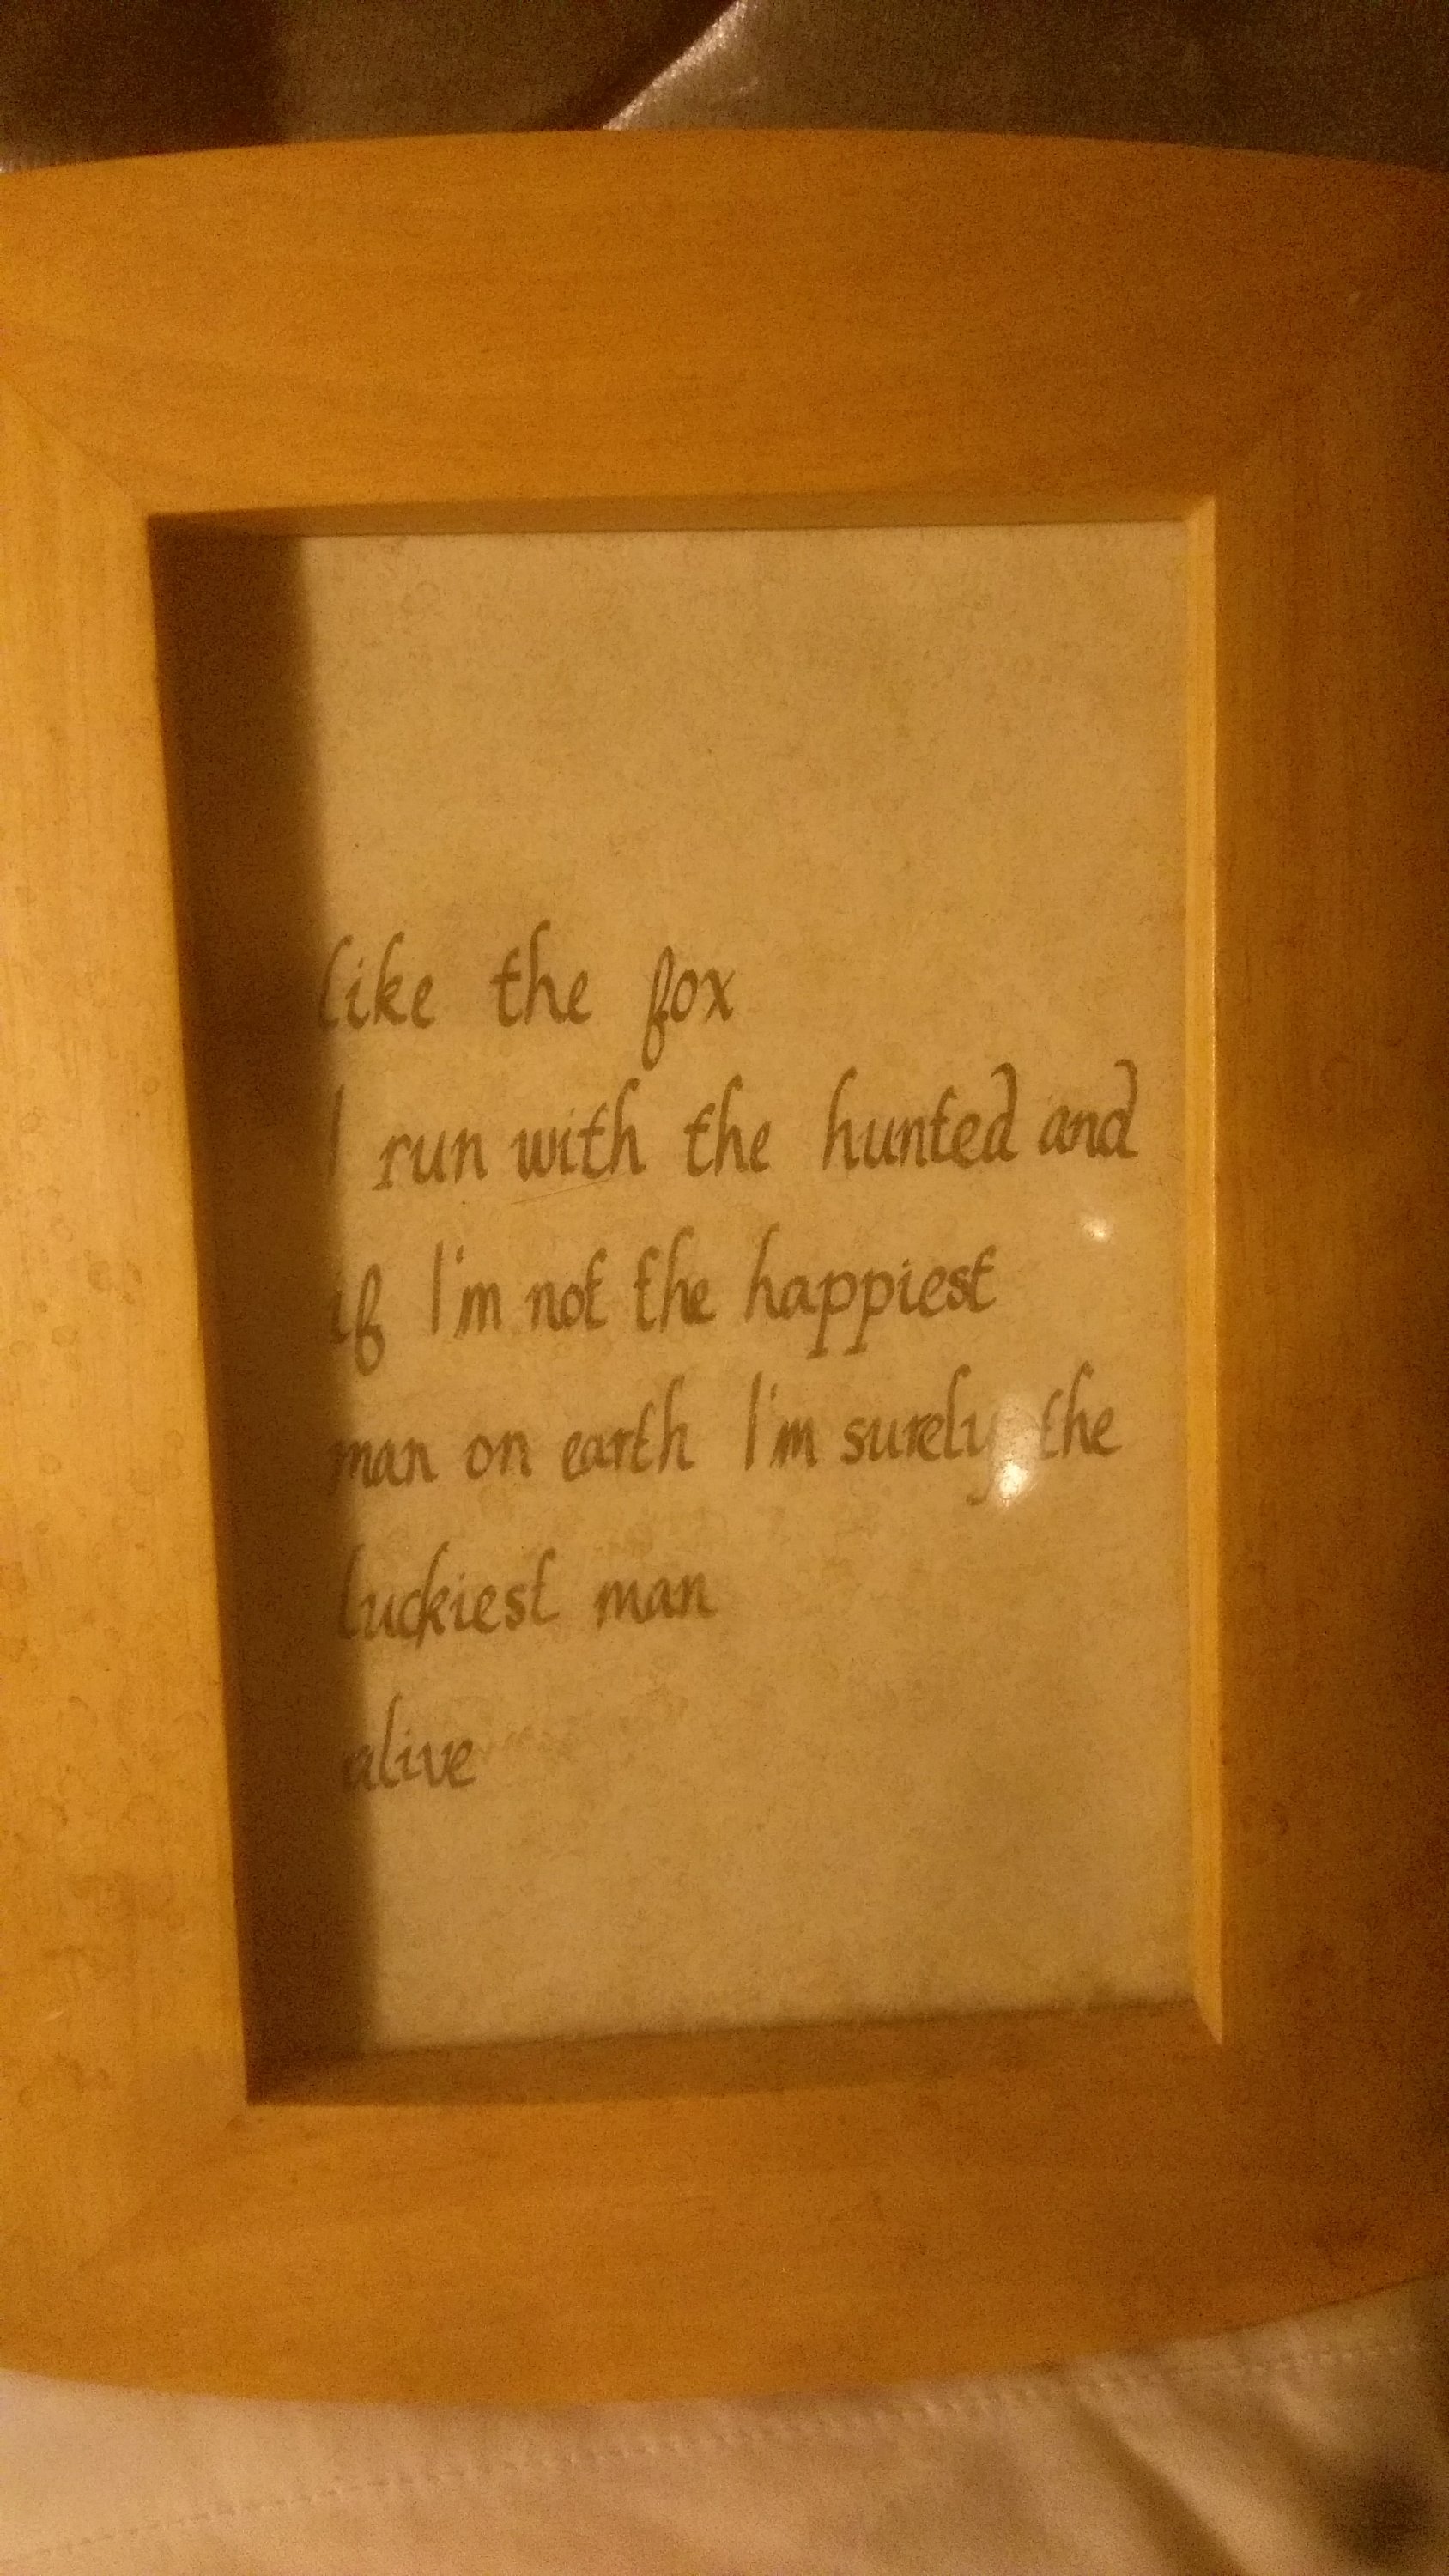 like the fox
I run with the hunted and
if I'm not the happiest
man on earth I'm surely the
luckiest man
alive